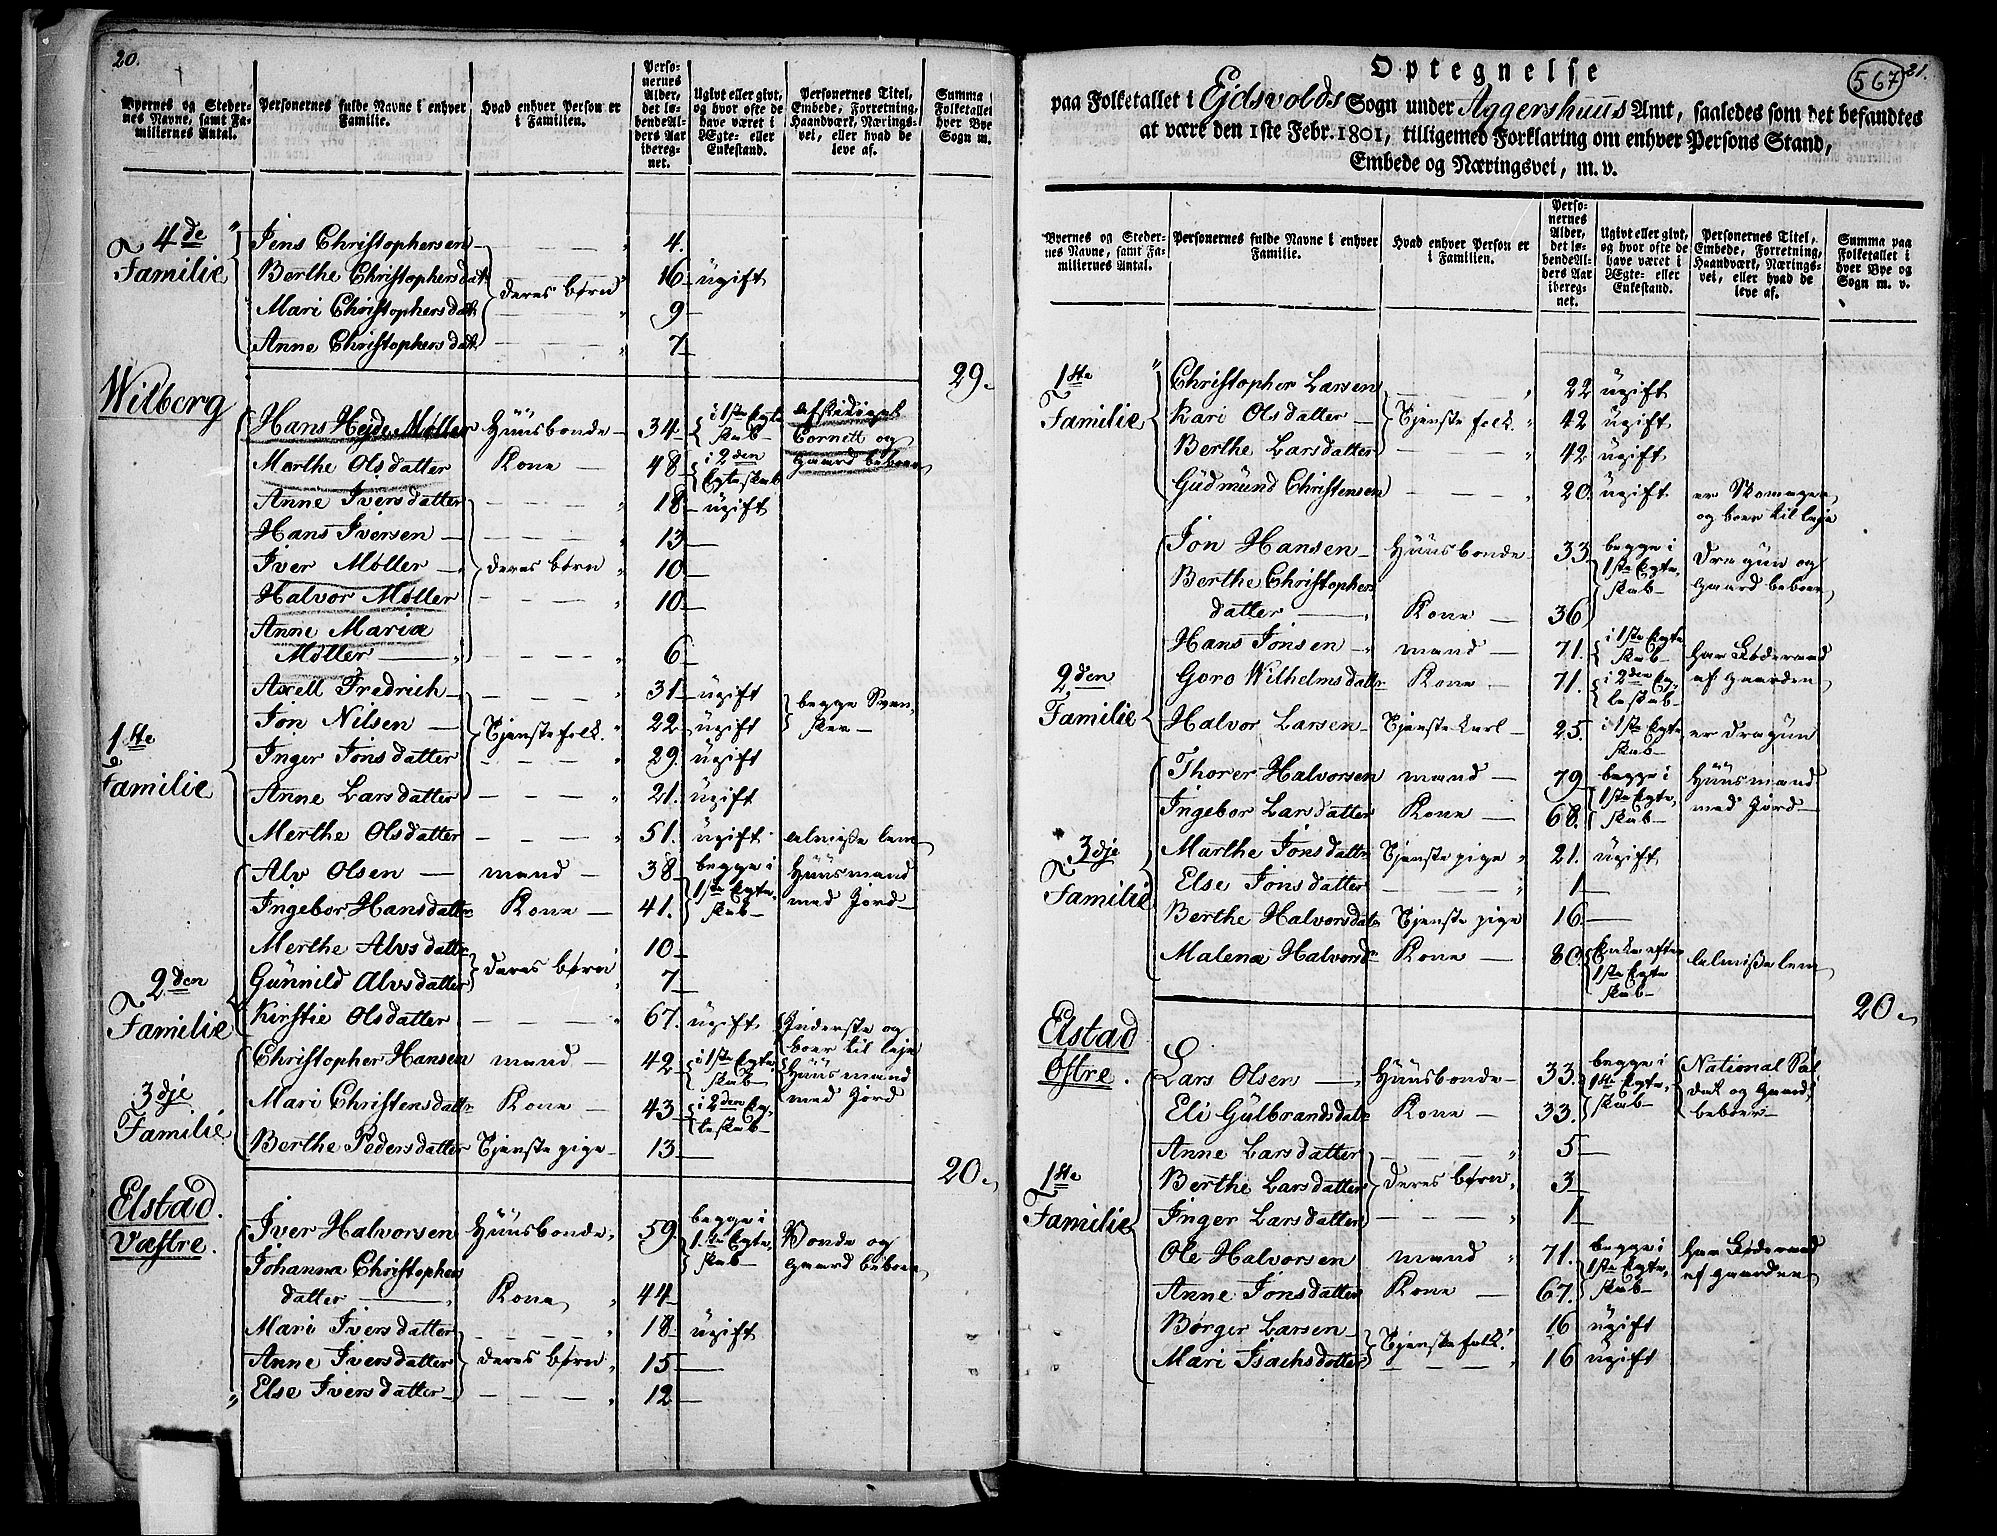 20.
Byernes og Steder-
nes Navne, samt Fa-
miliernes Antal.
Personernes fulde Navne i enhver
Familie.
Hvad enhver Person er
i Familien.
Perso-
nernes
Alder,
det lø-
bende Al-
ders Aar
iberegnet.
Ugivt eller givt,
og hvor ofte de
have været i
Ægte- eller
Enkestand.
Personernes Titel,
Embede, Forretning,
Haandværk, Nærings-
vei, eller hvad de
leve af.
Summa
Folketallet
hver Bye
Sogn m.
4de Familie
Jens Christophersen 4.
Berthe Christophersdat. deres børn 16 ugift
Mari Christophersdat. 9
Anne Christophersdat. 7
29.
Wilberg
1ste Familie
Hans Hejde Møller Huusbonde 34 i 1ste Egteskab afskediget Cornett og gaard beboer
Marthe Olsdatter Kone 48 i 2den Egteskab
Anne Iversdatter 18 ugift
Hans Iversen 13
Iver Møller deres børn 10
Halvor Møller 10
Anne Maria
Møller 6
Axell Fredrich 31 ugift begge Svensker
Jon Nilsen Tjenstefolk 22 ugift
Inger Jonsdatter 29 ugift
Anne Larsdatter 21. ugift
Merthe Olsdatter 51. ugift almisse lem
2den Familie
Alv Olsen mand 38 begge i 1ste Egteskab Huusmand med Jord
Ingebor Hansdatr Kone 41.
Merthe Alvsdatr 10
Gunnild Alvsdatter deres børn 7
Kirstie Olsdatter 67. ugift Inderste og boer til leje
3dje Familie
Christopher Hansen mand 42 i 1ste Egteskab Huusmand med Jord
Mari Christensdatr Kone 43 i 2den Egteskab
Berthe Pedersdatter Tjenste pige 13
20
Elstad Væstre.
Iver Halvorsen Huusbonde 59. begge i 1ste Egteskab Bonde og gaard beboer
Johanna Christophers
datter Kone 44
Mari Iversdatter 18 ugift
Anne Iversdatter deres børn 15
Else Iversdatter 12
567
21.
Optegnelse
paa Folketallet i Ejdsvolds Sogn under Aggershuus Amt, saaledes som det befandtes
at være den 1ste Febr. 1801, tilligemed Forklaring om enhver Persons Stand,
Embede og Næringsvei, m. v.
Byernes og Steder-
nes Navne, samt Fa-
miliernes Antal.
Personernes fulde Navne i enhver
Familie.
Hvad enhver Person er
i Familien.
Perso-
nernes
Alder,
det lø-
bende Al-
ders Aar
iberegnet.
Ugivt eller givt,
og hvor ofte de
have været i
Ægte- eller
Enkestand.
Personernes Titel,
Embede, Forretning,
Haandværk, Nærings-
vei, eller hvad de
leve af.
Summa paa
Folketallet i
hver Bye og
Sogn m. v.
1ste Familie
Christopher Larsen 22 ugift
Kari Olsdatter Tjenste folk. 42 ugift
Berthe Larsdatter 42 ugift
Gudmund Christensen 20 ugift er Skomager og boer til leje
2den Familie
Jon Hansen Huusbonde 33 begge i 1ste Egteskab dragun og gaard beboer
Berthe Christophers
datter Kone 36
Hans Jonsen mand 71. i 1ste Egteskab har Føderaad af gaarden
Goro Wilhelmsdatr Kone 71. i 2den Egteskab
Halvor Larsen Tjenste karl 25. i 1ste Egteskab er dragun
3dje Familie
Thorer Halvorsen mand 79 begge i 1ste Egteskab Huusmand med Jord
Ingebor Larsdatter Kone 68.
Marthe Jonsdatr Tjenste pige 21. ugift
Else Jonsdatter 1
Berthe Halvorsdatr Tjenste pige 16
Malena Halvordr Kone 80 Enke efter 1ste Egteskab almisse lem
20
Elstad Østre.
1ste Familie
Lars Olsen Huusbonde 33. begge i 1ste Egteskab National Soldat og gaard beboer
Eli Gulbrandsdatr Kone 33.
Anne Larsdatter 5
Berthe Larsdatter deres børn 3
Inger Larsdatter 1
Ole Halvorsen mand 71. begge i 1ste Egteskab har Føderaad af gaarden
Anne Jonsdatter Kone 67.
Børger Larsen Tjenstefolk 16 ugift
Mari Isachsdatter 16 ugift